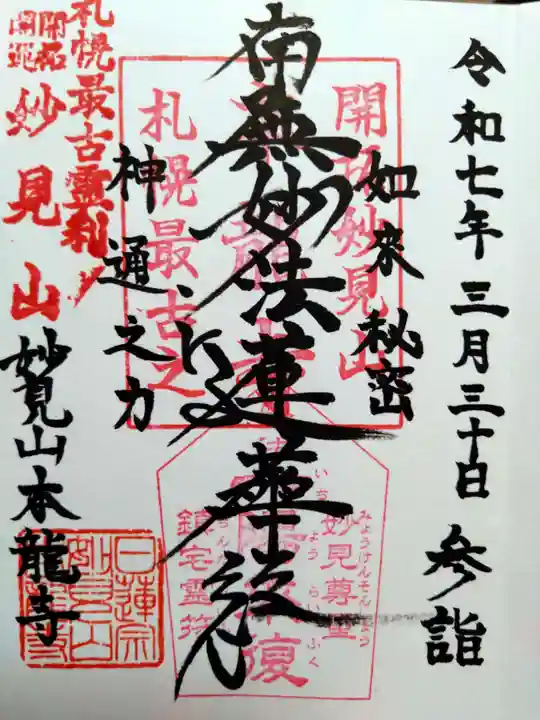 令和七年三月三十日 参詣
如来秘密
南無妙法蓮華経
神通之力
妙見山本龍寺
開拓妙見山
札幌最古之
妙見尊星
みょうけんそんじょう
いちようらいふく
復
鎮宅霊符
札幌最古霊刹
開拓
開運
妙見山
日蓮宗
妙見山